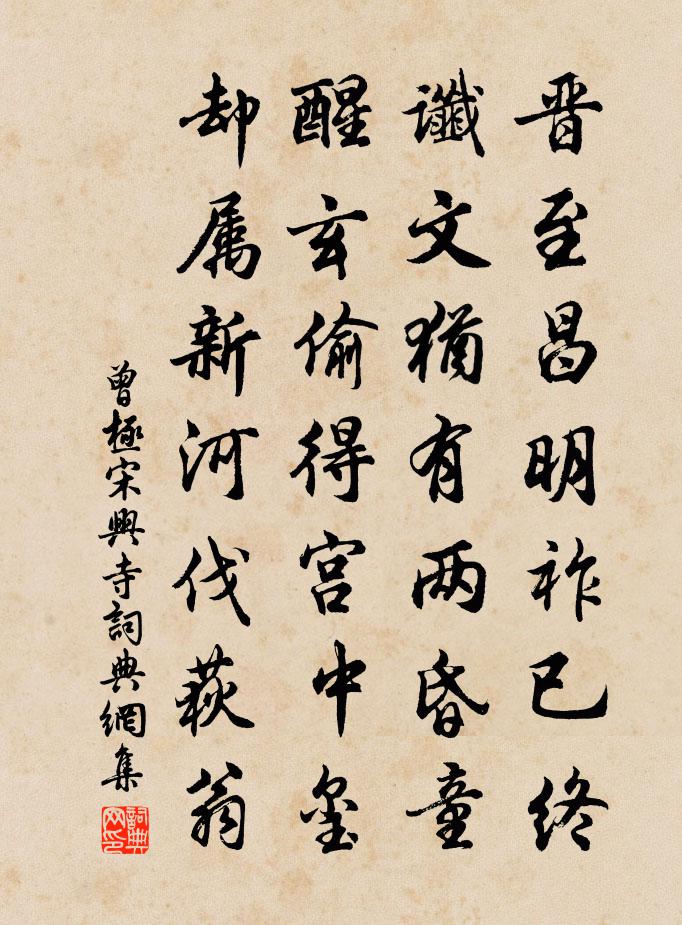 晋至昌明祚已终
谶文犹有两昏童
醒玄偷得宫中玺
却属新河伐荻翁
曾極宋興寺詞典網集
詞典网印